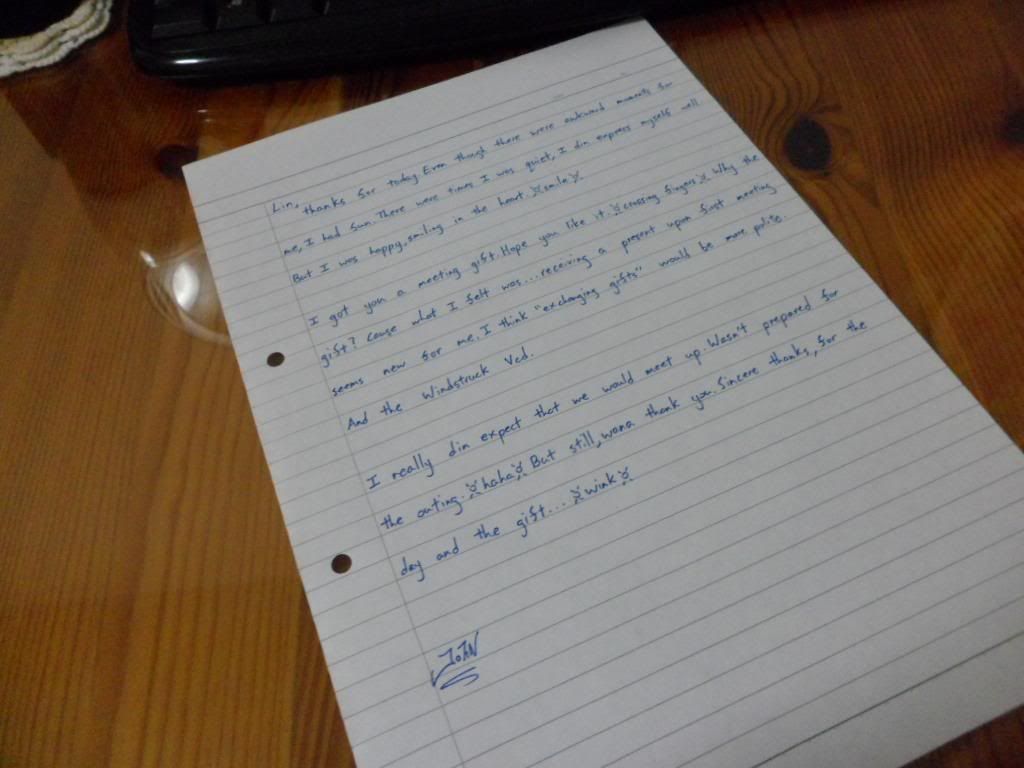 Lin,
thanks for today. Even though there were awkward moments for
me, I had fun. There were times I was quiet, I din express myself well
But I was happy, smiling in the heart. ※smile※
I got you a meeting gift. Hope you like it. ※crossing fingers※ Why the
gift? Cause what I felt was... receiving a present upon first meeting
seems new for me. I think "exchanging gifts" would be more polite.
And the Windstruck Vcd.
I really din expect that we would meet up. Wasn't prepared for
the outing. ※haha※ But still, wana thank you. Sincere thanks, for the
day and the gift... ※wink※
JOHN